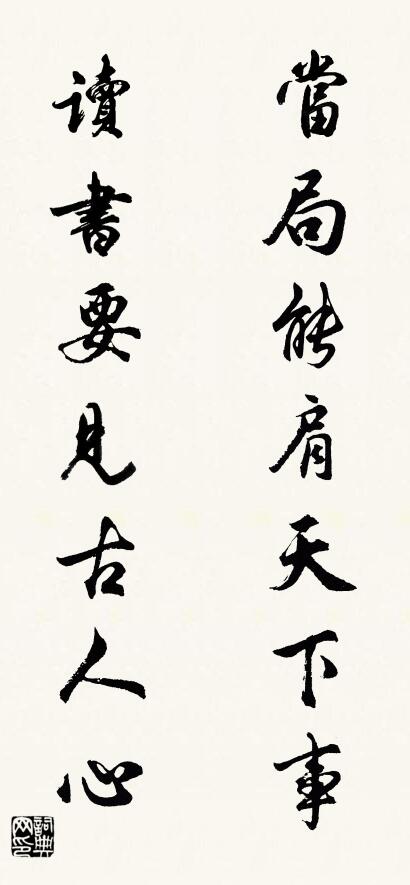 當局能肩天下事
讀書要見古人心
詞典網印